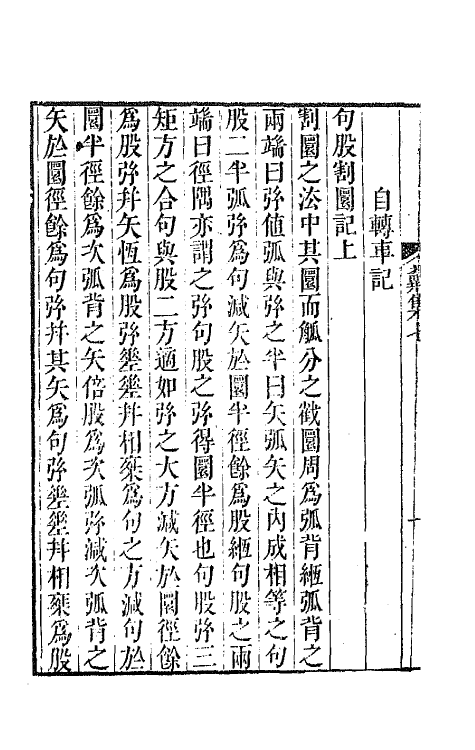 集七
一
自轉車記
句股割圜記上
割圜之法中其圜而觚分之截圜周爲弧背縆弧背之
兩端曰弦值弧與弦之半曰矢弧矢之內成相等之句
股二半弧弦爲句減矢於圜半徑餘爲股縆句股之兩
端曰徑隅亦謂之弦句股之弦得圜半徑也句股弦三
矩方之合句與股二方適如弦之大方減矢於圜徑餘
爲股弦幷矢恆爲股弦㕘㕘幷相乘爲句之方減句於
圜半徑餘爲次弧背之矢倍股爲次弧弦減次弧背之
矢於圜徑餘爲句弦幷其矢爲句弦㕘㕘幷相乘爲股